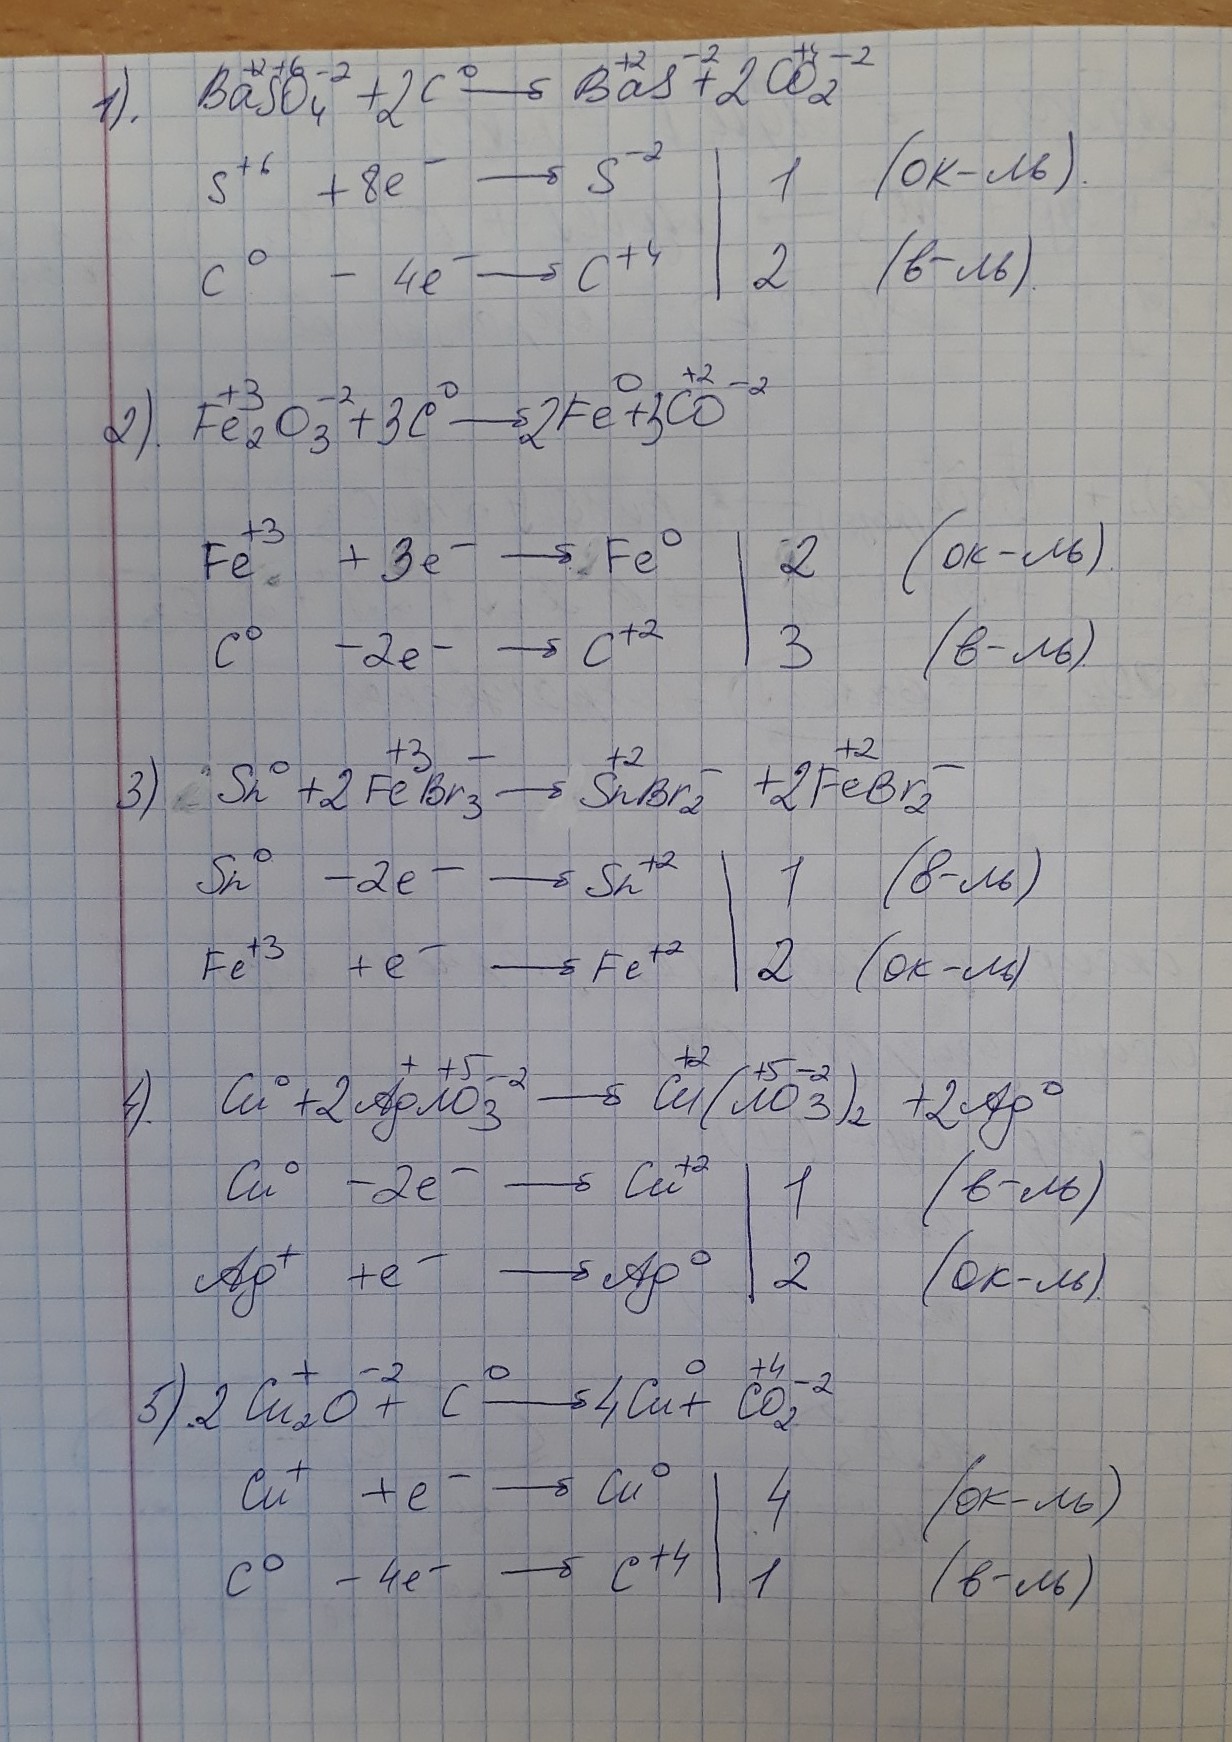 1). Ba⁺²S⁺⁶O₄⁻² + 2C⁰ → Ba⁺²S⁻² + 2C⁺⁴O₂⁻²
S⁺⁶ + 8e⁻ → S⁻² | 1 (ок-ль).
C⁰ - 4e⁻ → C⁺⁴ | 2 (в-ль).
2). Fe₂⁺³O₃⁻² + 3C⁰ → 2Fe⁰ + 3C⁺²O⁻²
Fe⁺³ + 3e⁻ → Fe⁰ | 2 (ок-ль).
C⁰ - 2e⁻ → C⁺² | 3 (в-ль).
3) Sn⁰ + 2Fe⁺³Br₃⁻ → Sn⁺²Br₂⁻ + 2Fe⁺²Br₂⁻
Sn⁰ - 2e⁻ → Sn⁺² | 1 (в-ль)
Fe⁺³ + e⁻ → Fe⁺² | 2 (ок-ль)
4). Cu⁰ + 2Ag⁺N⁺⁵O₃⁻² → Cu⁺²(N⁺⁵O₃⁻²)₂ + 2Ag⁰
Cu⁰ - 2e⁻ → Cu⁺² | 1 (в-ль)
Ag⁺ + e⁻ → Ag⁰ | 2 (ок-ль).
5). 2Cu₂⁺O⁻² + C⁰ → 4Cu⁰ + C⁺⁴O₂⁻²
Cu⁺ + e⁻ → Cu⁰ | 4 (ок-ль)
C⁰ - 4e⁻ → C⁺⁴ | 1 (в-ль)